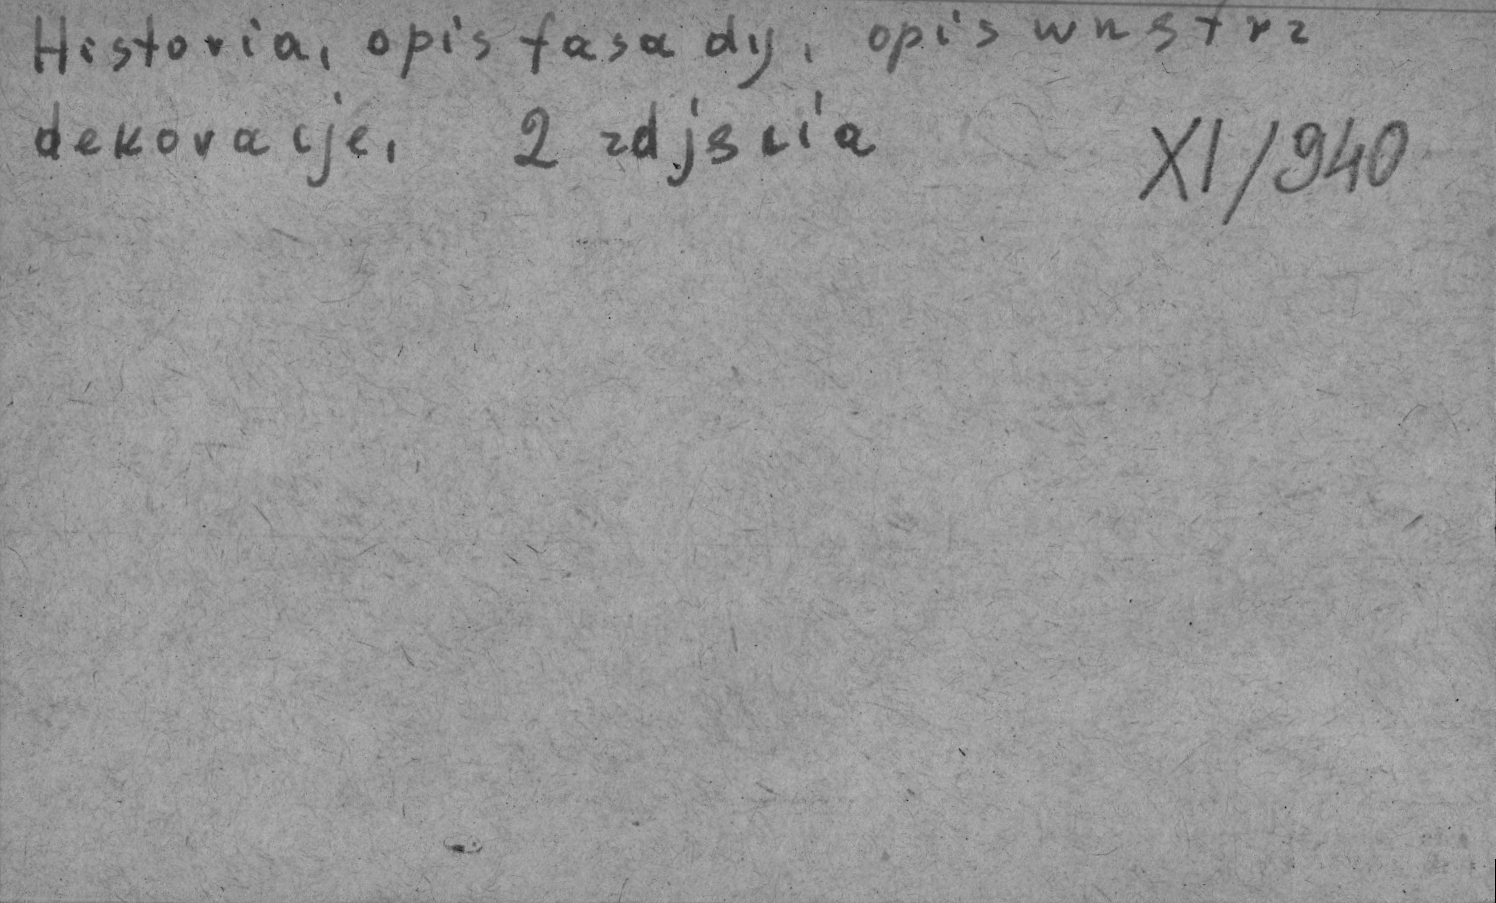 Historia, opis fasady, opis wnstrz
dekoracje, 2 zdjscia
XI/940